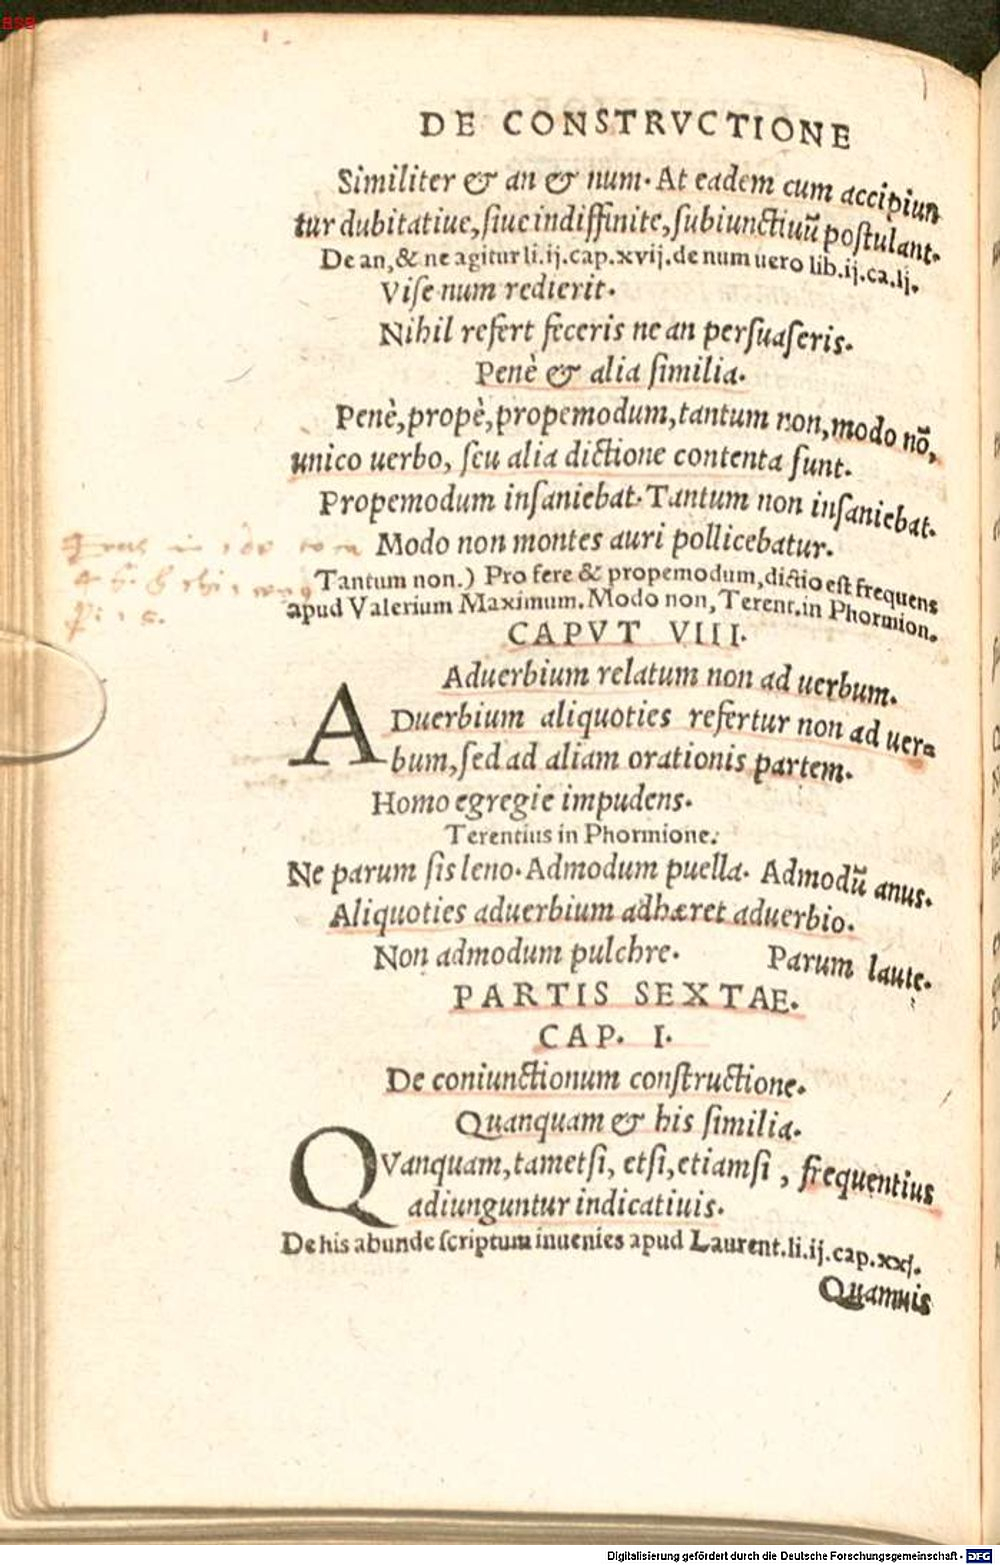 BSB
DE CONSTRVCTIONE
Similiter & an & num. At eadem cum accipiun
tur dubitatiue, siue indiffinite, subiunctiuũ postulant.
De an, & ne agitur li.ij.cap.xvij. de num uero lib.ij.ca.lj.
Vise num redierit.
Nihil refert feceris ne an persuaseris.
Penè & alia similia.
Penè, propè, propemodum, tantum non, modo nõ,
unico uerbo, seu alia dictione contenta sunt.
Propemodum insaniebat. Tantum non insaniebat.
Modo non montes auri pollicebatur.
Tantum non.) Pro fere & propemodum, dictio est frequens
apud Valerium Maximum. Modo non, Terent. in Phormion.
CAPVT VIII.
Aduerbium relatum non ad uerbum.
ADuerbium aliquoties refertur non ad uer=
bum, sed ad aliam orationis partem.
Homo egregie impudens.
Terentius in Phormione.
Ne parum sis leno. Admodum puella. Admodũ anus.
Aliquoties aduerbium adhæret aduerbio.
Non admodum pulchre. Parum laute.
PARTIS SEXTAE.
CAP. I.
De coniunctionum constructione.
Quanquam & his similia.
QVanquam, tametsi, etsi, etiamsi, frequentius
adiunguntur indicatiuis.
De his abunde scriptum inuenies apud Laurent. li.ij.cap.xxj.
Quamuis
Digitalisierung gefördert durch die Deutsche Forschungsgemeinschaft - DFG